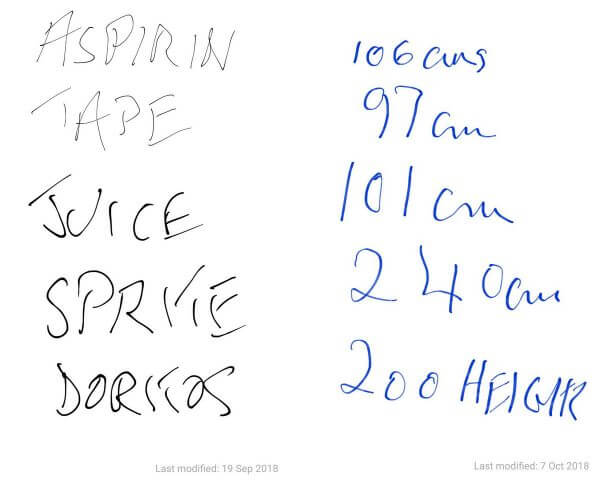 ASPIRIN
TAPE
JUICE
SPRITE
DORITOS
Last modified: 19 Sep 2018
106 cms
97 cm
101 cm
240 cm
200 HEIGHT
Last modified: 7 Oct 2018